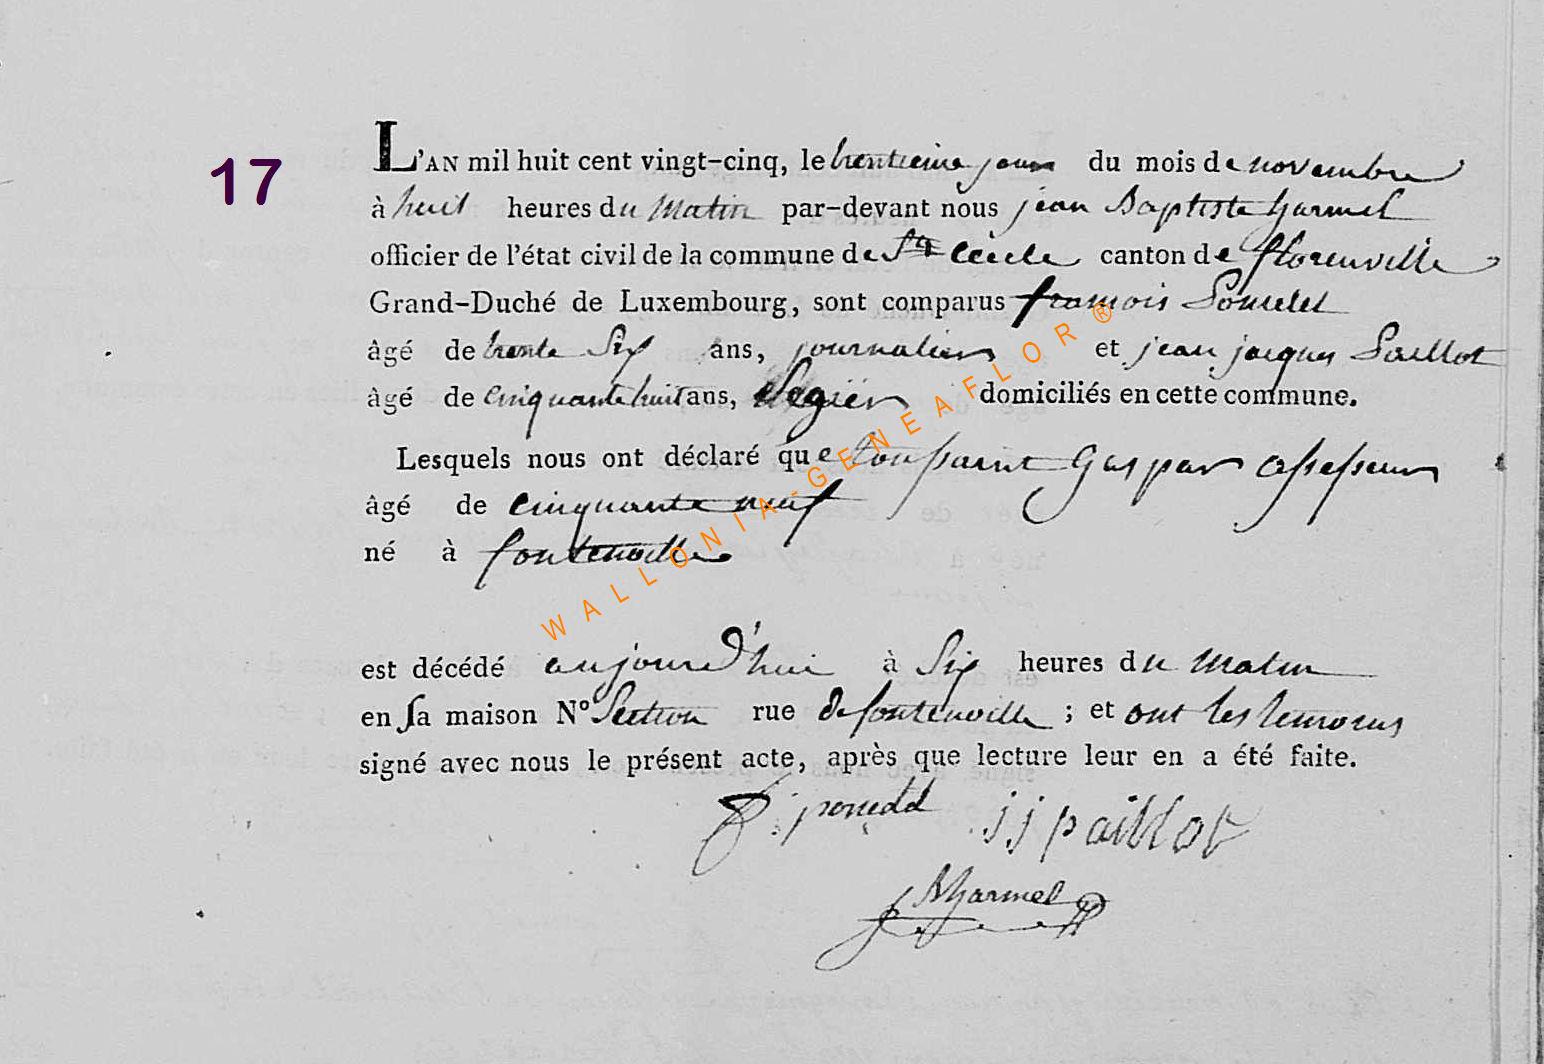 17
L'AN mil huit cent vingt-cinq, le trentieme jour du mois de novembre
à huit heures du Matin par-devant nous jean Baptiste harmel
officier de l'état civil de la commune de Ste Cécile canton de florenville
Grand-Duché de Luxembourg, sont comparus francois
âgé de trente Six ans, journalier et jean jacques Paillot
âgé de cinquante huit ans, domiciliés en cette commune.
Lesquels nous ont déclaré que toussaint Gaspar assesseur
âgé de cinquante neuf
né à fontenoille
est décédé aujourd'hui à Six heures du Matin
en sa maison N° Section rue de fontenoille ; et ont les temoins
signé avec nous le présent acte, après que lecture leur en a été faite.
j j paillot
harmel
WALLONIA-GENEAFLOR®